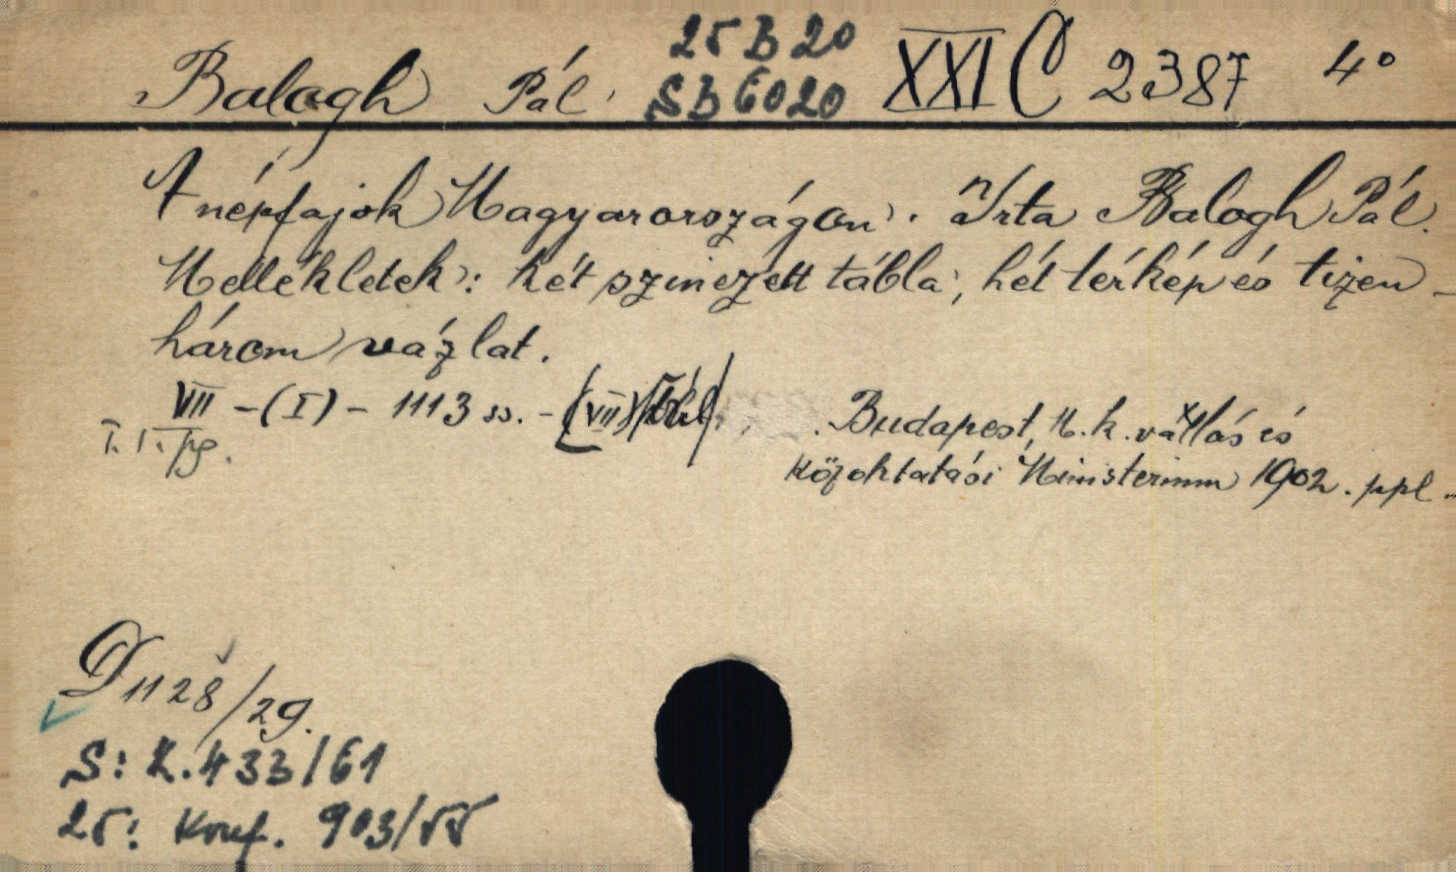 25 B 20
Balogh Pál. SB 6020 XXI C 2387 4°
A népfajok Magyarországon. Irta Balogh Pál.
Mellékletek: két szinezett tábla, hét térkép és tizen-
három vázlat.
VII - (I) - 1113 ss. - (VII)
T. I. pg. Budapest, M. k. vallás és
közoktatási Ministerium 1902. ppl.
D 1128/29.
S: K. 433/61
25: Konf. 903/55